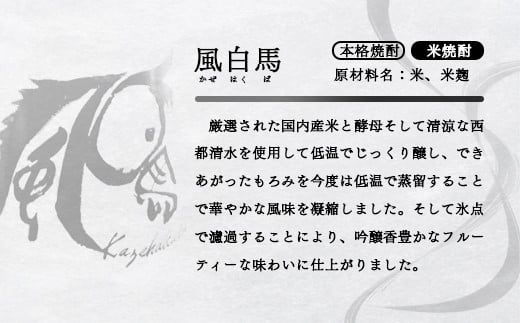 風白馬
かぜ はく ば
本格焼酎 米焼酎
原材料名：米、米麹
厳選された国内産米と酵母そして清涼な西
都清水を使用して低温でじっくり醸し、でき
あがったもろみを今度は低温で蒸留すること
で華やかな風味を凝縮しました。そして氷点
で濾過することにより、吟醸香豊かなフルー
ティーな味わいに仕上がりました。